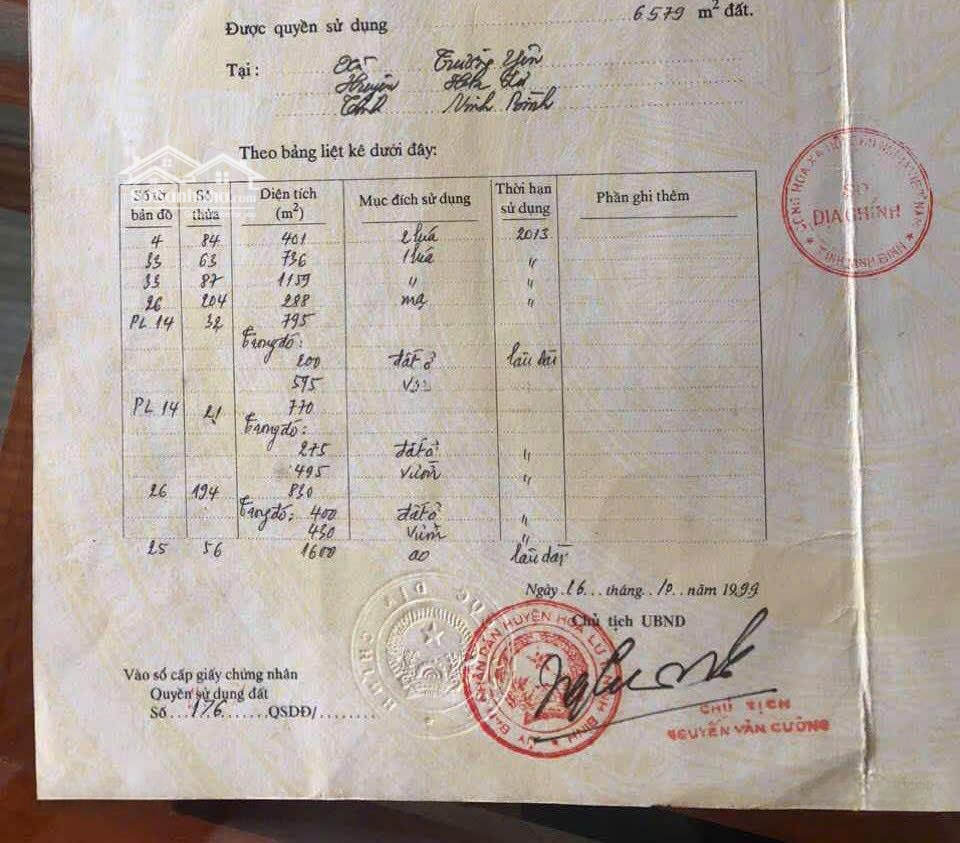 Được quyền sử dụng 6579 m² đất.
Tại : Xã Trường Yên
Huyện Hoa Lư
Tỉnh Ninh Bình
Theo bảng liệt kê dưới đây:
Số tờ bản đồ Số thửa Diện tích (m²) Mục đích sử dụng Thời hạn sử dụng Phần ghi thêm
4 84 401 2 lúa 2013
33 63 736 1 lúa "
33 87 1159 " "
26 204 288 mạ "
PL 14 32 795
Trong đó:
200 đất ở lâu dài
595 vườn
PL 14 21 770
Trong đó:
275 đất ở "
495 vườn "
26 194 830
Trong đó: 400 đất ở "
430 vườn "
25 56 1600 ao lâu dài
SỞ
ĐỊA CHÍNH
TỈNH NINH BÌNH
Ngày 16 tháng 10 năm 1999
Chủ tịch UBND
ỦY BAN NHÂN DÂN HUYỆN HOA LƯ
CHỦ TỊCH
NGUYỄN VĂN CƯỜNG
Vào sổ cấp giấy chứng nhân
Quyền sử dụng đất
Số 176 QSDĐ/